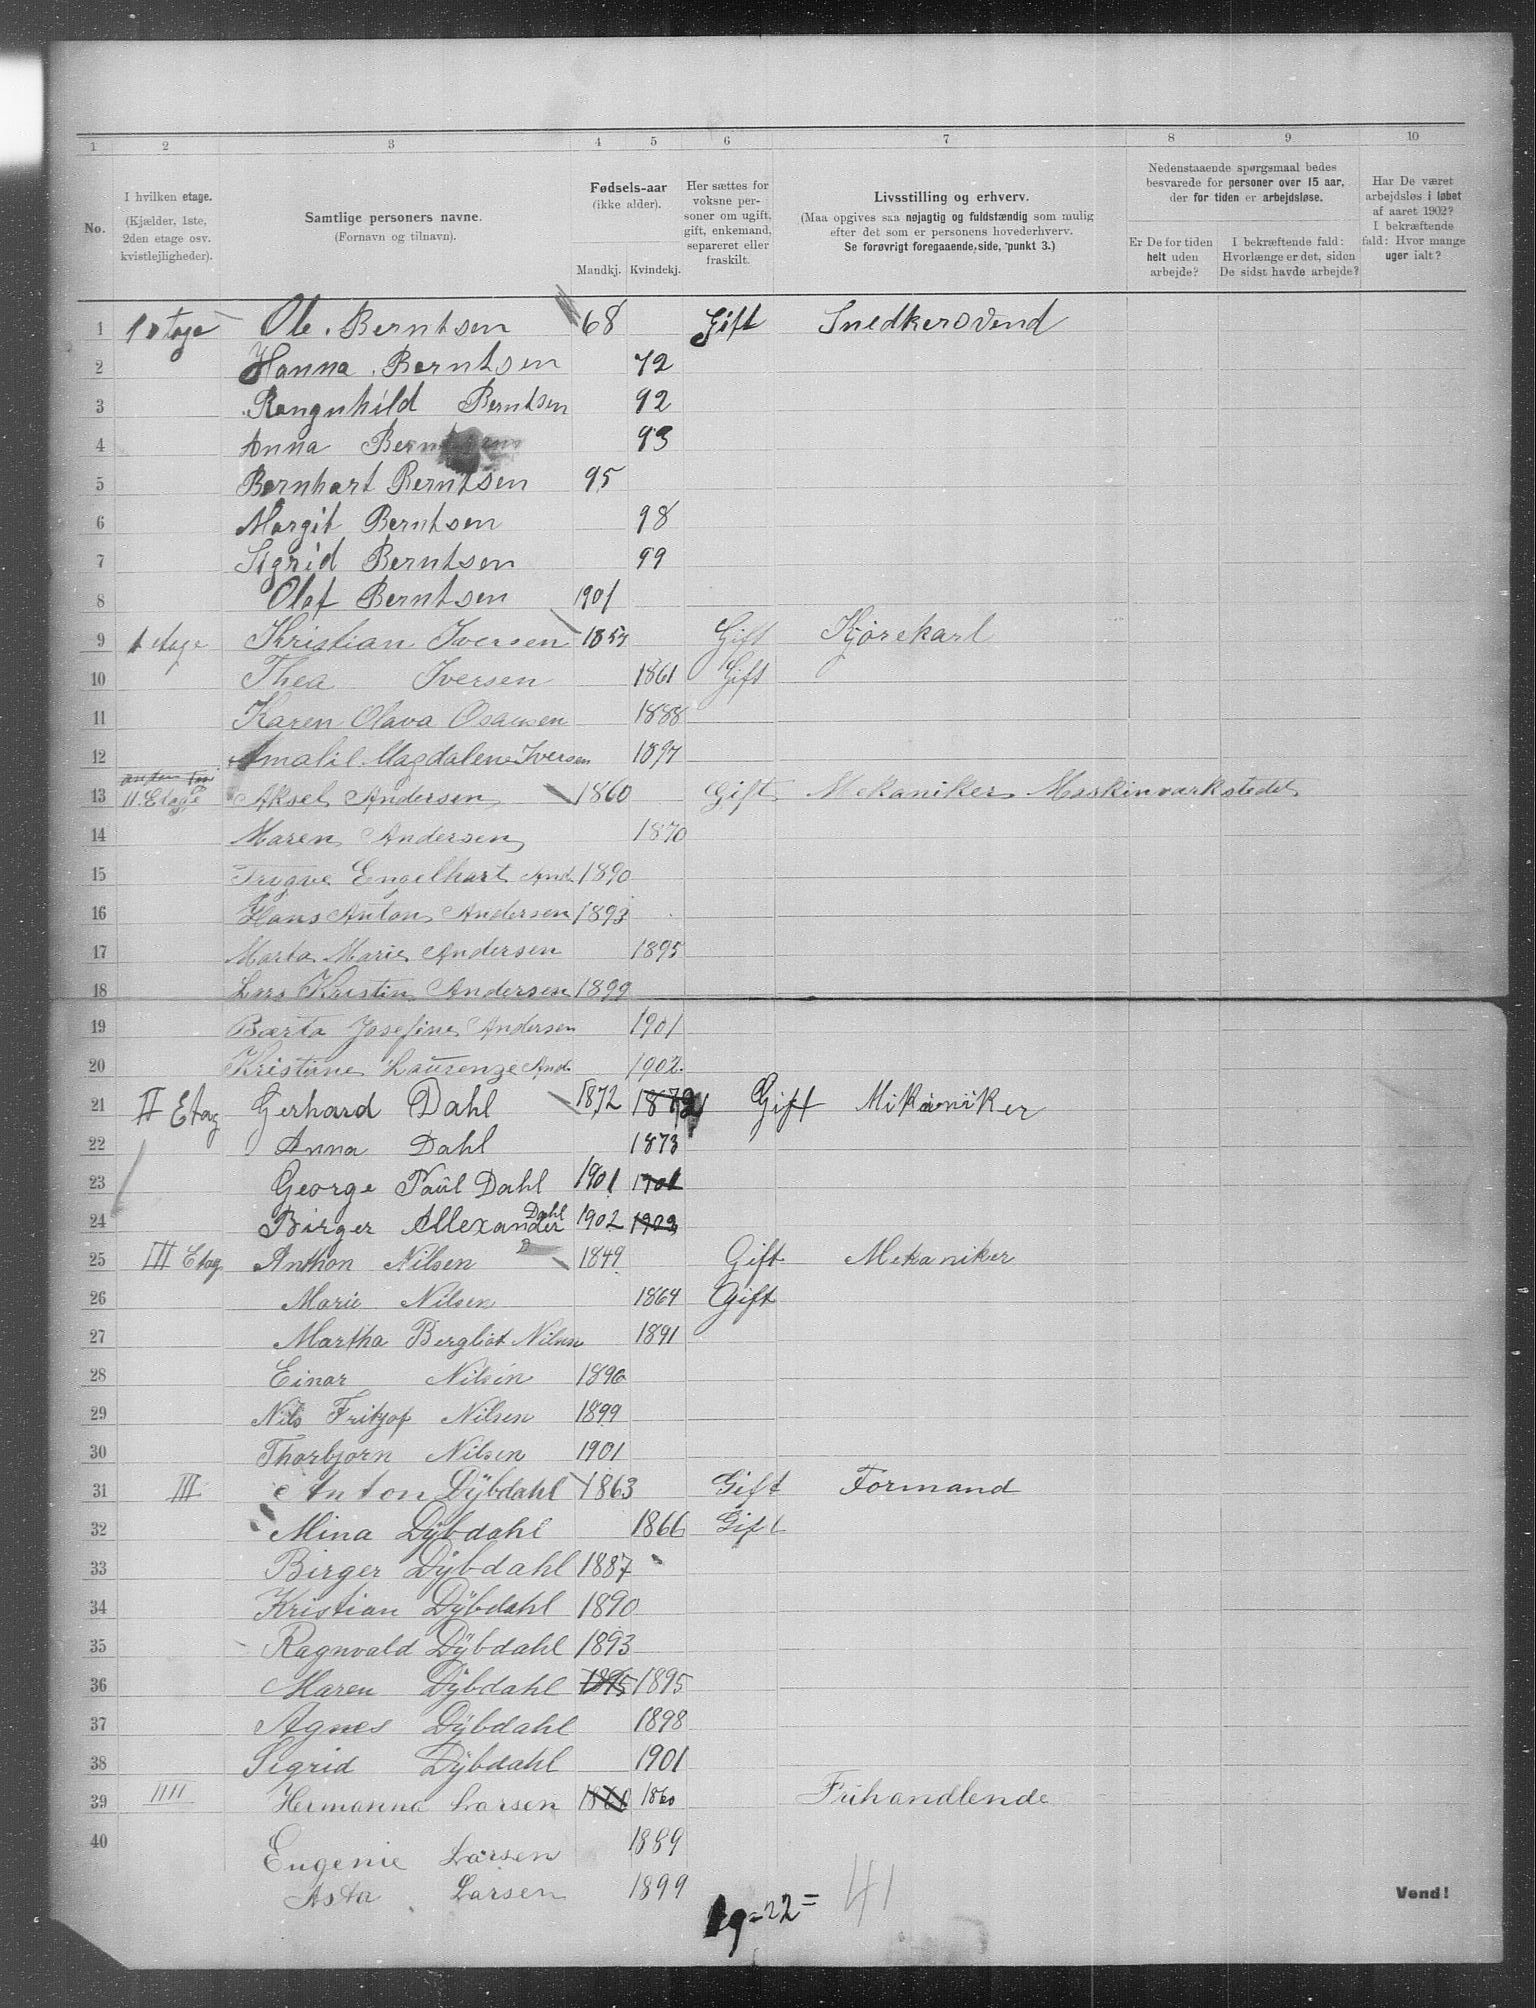 1 2 3 4 5 6 7 8 9 10
No.
I hvilken etage.
(Kjælder, 1ste,
2den etage osv.
kvistlejligheder).
Samtlige personers navne.
(Fornavn og tilnavn).
Fødsels-aar
(ikke alder).
Mandkj. Kvindekj.
Her sættes for
voksne per-
soner om ugift,
gift, enkemand,
separeret eller
fraskilt.
Livsstilling og erhverv.
(Maa opgives saa nøjagtig og fuldstændig som mulig
efter det som er personens hovederhverv.
Se forøvrigt foregaaende side, punkt 3.)
Nedenstaaende spørgsmaal bedes
besvarede for personer over 15 aar,
der for tiden er arbejdsløse.
Er De for tiden
helt uden
arbejde?
I bekræftende fald:
Hvorlænge er det, siden
De sidst havde arbejde?
Har De været
arbejdsløs i løbet
af aaret 1902?
I bekræftende
fald: Hvor mange
uger ialt?
1 Ole Berntsen 68 Gift Snedkersvend
2 Hanna Berntsen 72
3 Rangnhild Berntsen 92
4 Anna Berntsen 93
5 Bernhart Berntsen 95
6 Margit Berntsen 98
7 Sigrid Berntsen 99
8 Olaf Berntsen 1901
9 1 etage Kristian Iversen Gift Kjørekarl
10 Thea Iversen 1861 Gift
11 Karen Olava 1888
12 Amalie Magdalene Iversen 1897
13 II. Etage Aksel Andersen 1860 Gift Mekaniker Maskinvarkstedet
14 Maren Andersen 1870
15 Trygve Engelhart And. 1890
16 Hans Anton Andersen 1893
17 Marta Marie Andersen 1895
18 Lars Kristin Andersen 1899
19 Bærta Josefine Andersen 1901
20 Kristine Laurenze And. 1902
21 II Etag Gerhard Dahl 1872 1872 Gift Mikaniker
22 Anna Dahl 1873
23 George Paul Dahl 1901 1901
24 Birger Allexander Dahl 1902 1902
25 III Etag Anthon Nilsen 1849 Gift Mekaniker
26 Marie Nilsen 1864 Gift
27 Martha Bergliot Nilsen 1891
28 Einar Nilsen 1896
29 Nils Fritjof Nilsen 1899
30 Thorbjørn Nilsen 1901
31 III Anton Dÿbdahl 1863 Gift Formand
32 Mina Dÿbdahl 1866 Gift
33 Birger Dÿbdahl 1887
34 Kristian Dÿbdahl 1890
35 Ragnvald Dÿbdahl 1893
36 Maren Dÿbdahl 1895 1895
37 Agnes Dÿbdahl 1898
38 Sigrid Dÿbdahl 1901
39 IIII Hermanna Larsen 1860 Frihandlende
40 Eugenie Larsen 1889
Asta Larsen 1899
19=22= 41
Vend!